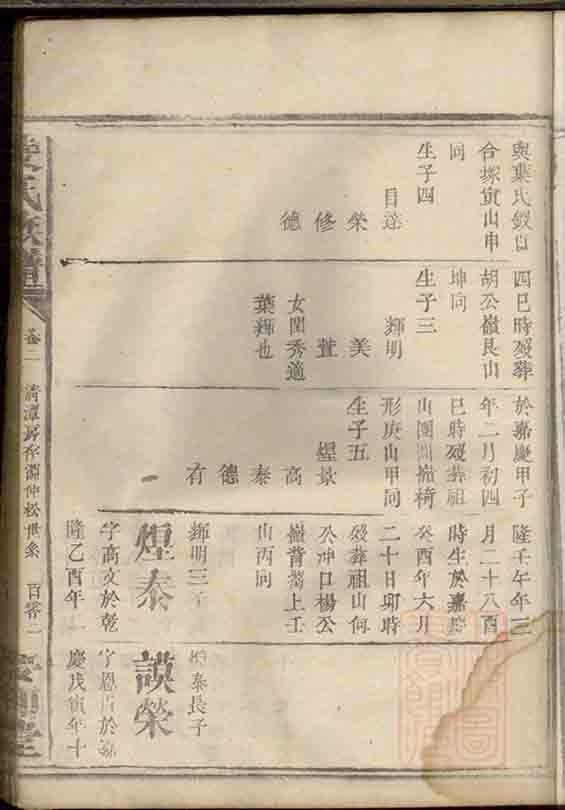 與葉氏僉
合塚寅山申
向
生子四
目達
榮
修
德
四巳時歿葬
胡公嶺艮山
坤向
生子三
輝明
美
萱
女閏秀適
葉輝也
於嘉慶甲子
年二月初四
巳時歿葬祖
山團圝嶺椅
形庚山甲向
生子五
煋景
高
泰
德
有
隆壬午年三
月二十八酉
時生於嘉慶
癸酉年六月
二十日卯時
歿葬祖山何
公冲口楊公
嶺背灣上壬
山丙向
煌泰
輝明三子
字高文於乾
隆乙酉年
謨榮
泰長子
字恩 於嘉
慶戊寅年十
氏族譜
卷二
清潭房存淵仲松世系
百零二